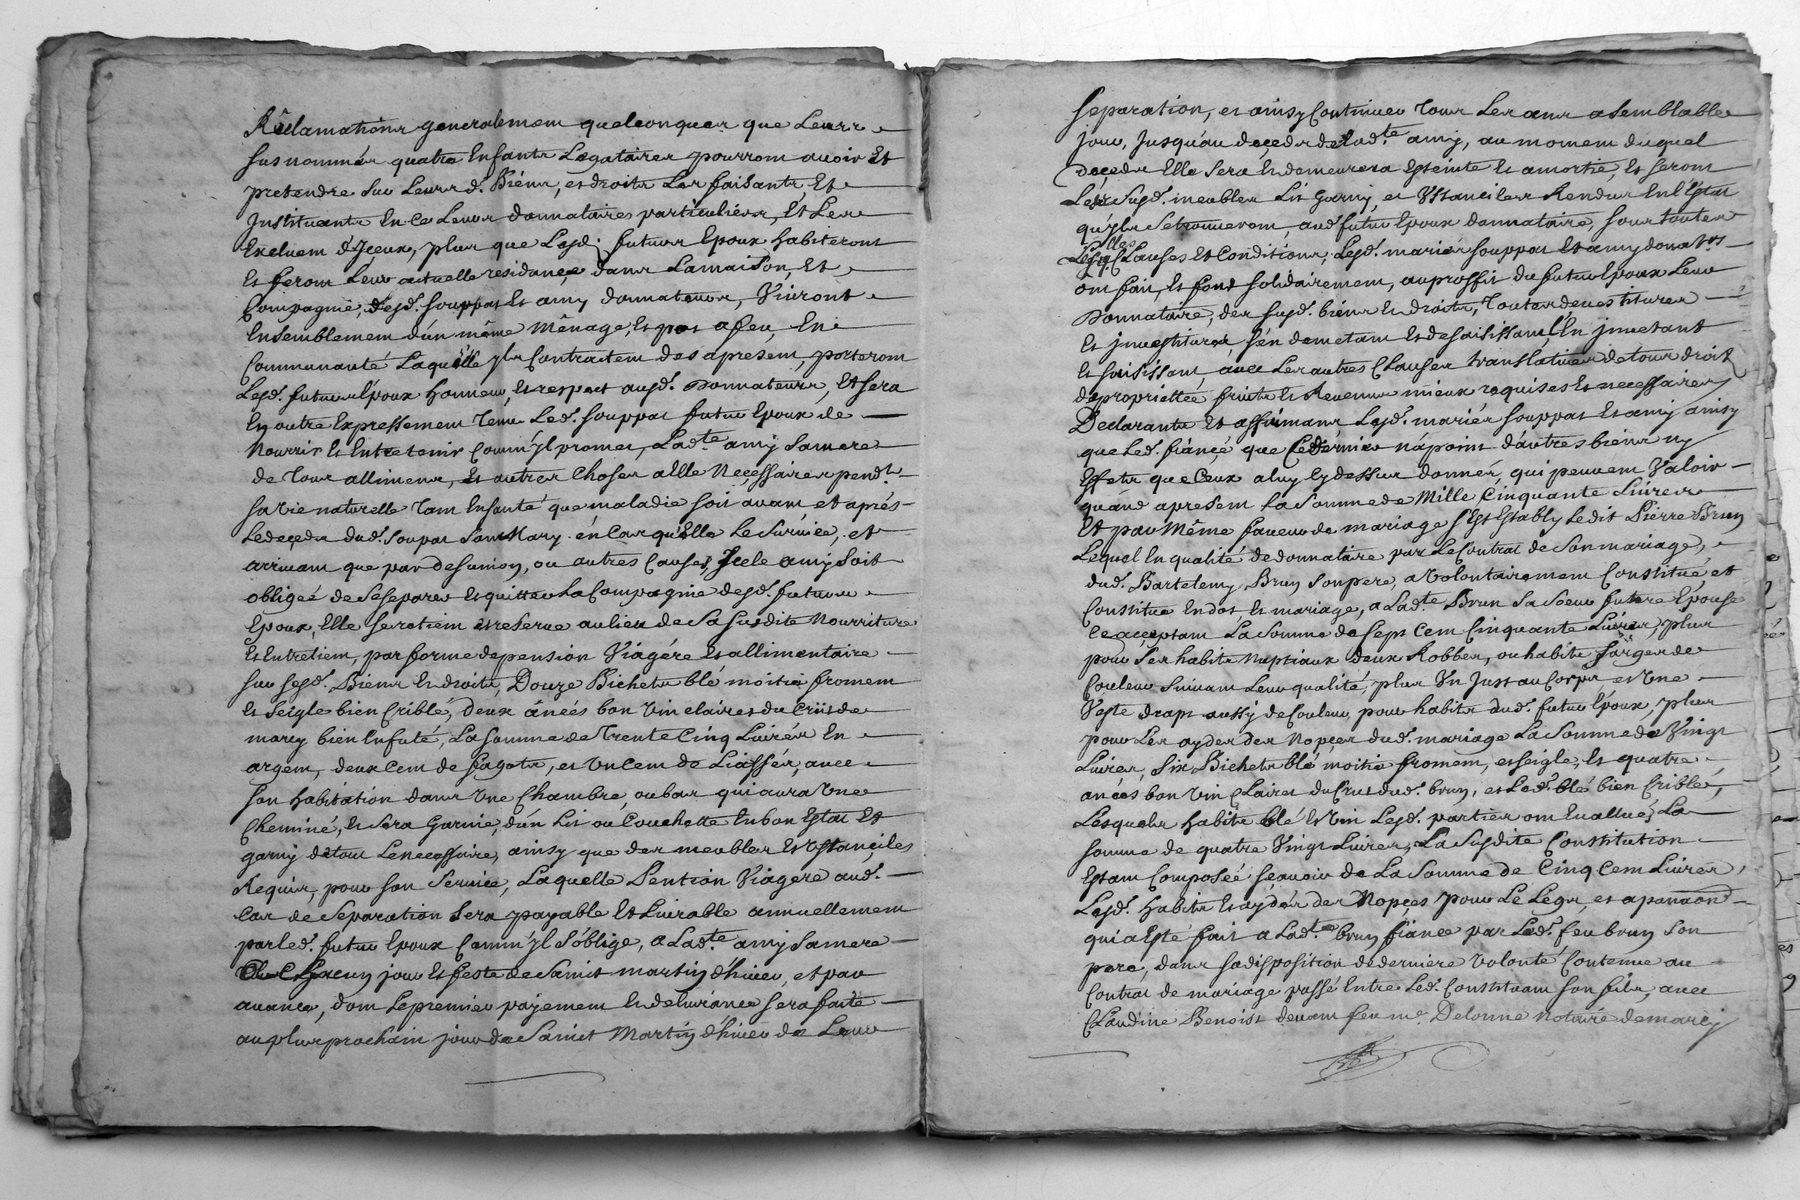 Réclamations generalement quelconques que Leurs
sus nommés quatre Enfants Legataires pourront avoir Et
pretendre sur Leurs d. Biens, et droits Les faisants, Et
Instituants En ce Leurs donnataires particuliers, Et Les
Excluent d'Iceux, plus que Lesd. futurs Epoux habiteront
Et feront Leur actuelle residançe dans La maison, Et
Compagnie, desd. souppat Et amy donnateurs, Vivront
Ensemblement d'un même Mênage, Et pot a feu, En
Communauté Laquelle yls Contractent des apresent, porteront
Lesd. futurs Epoux honneur, et respect ausd. Donnateurs, Et sera
En outre Expressement tenu Led. souppat futur Epoux de
Nourrir Et Entretenir Comm'yl promet, Lad.te amy Sa mere
de tous alliments, et autres choses a Elle Neçessaires pend.t
sa vie naturelle tant En santé que maladie soit avant, et aprés
Le deçeds dud. Soupat Son Mary en Cas qu'Elle Le Survive, et
arrivant que par desunion, ou autres Causes, Icele amy soit
obligeé de se separer et quitter La Compagnie desd. futurs
Epoux, Elle se retient et reserve au lieu de Sa susdite Nourriture
Et Entretient, par forme de pension Viágére Et allimentaire
sur sesd. Biens Et droits, Douze Bichets blé moitié froment
Et seigle bien Criblé, deux ânéés bon Vin claires du Crüs de
marcy bien Enfuté, La somme de Trente Cinq Livres En
argent, deux Cent de fagots, et un Cent de Liasses, avec
son habitation dans Une Chambre, ou bas qui aura Une
Cheminé, Et sera Garnie, d'un Lit ou Couchette En bon Estat Et
garny de tout Le necessaire, ainsy que des meubles Et Ustanciles
Requis, pour son Service, Laquelle Pention Viagere aud.
Cas de Separation sera payable Et Livrable annuellement
par led. futur Epoux Comm'yl S'oblige, a Lad.te amy Sa mere
Chacun jour Et feste de Saint martin d'hiver, et par
avance, dont Le premier payement Et delivrance sera faite
au plus prochain jour de Saint Martin d'hiver de Leur
Separation, et ainsy Continuer tous Les ans a semblable
jour, Jusqu'au deçeds de Lad.te amy, au moment duquel
deçeds Elle sera Et demeurera Esteinte Et amortie, Et seront
Les susd. meubles Lit Garny, et Ustanciles Rendus En l'Estat
qu'yls se trouveront, aud. futur Epoux donnataire, sous toutes
Lesq.lles Clauses Et Conditions, Lesd. mariés souppat Et amy donat.rs
ont fait, Et font solidairement, au proffit du futur Epoux Leur
Donnataire, des susd. biens Et droits, toutes devestitures
Et jnvestitures, s'en demetant Et desaisissant, L'En jnvetant
Et saisissant, avec Les autres Clauses translatives de tous droits
de propriettée, fruits Et Revenus mieux requises Et necessaires
Declarants Et affirmants Lesd. mariés souppat Et amy ainsy
que Led. fiançé que Ce dernier n'a point d'autres biens ny
Effets que Ceux a luy Cy dessus donnés, qui peuvent Valoir
quand apresent La somme de Mille Cinquante Livres
Et par Même faveur de mariage s'Est Estably Ledit Pierre Brun
Lequel En qualité de donnataire par Le Contrat de Son mariage,
dud. Bartelemy Brun Son pere, a Volontairement Constitué, et
Constitue En dot Et mariage, a Lad.te Brun Sa Soeur future Epouse
Ce acçeptant La Somme de Sept Cent Cinquante Livres, plus
pour Ses habits nuptiaux deux Robbes, ou habits sarges de
Couleur Suivant Leur qualité, plus Un Just au Corps et Une
Veste drap aussy de Couleur, pour habits dud. futur Epoux, plus
pour Les ayder des Nopces dud. mariage La Somme de Vingt
Livres, Six Bichets blé moitié froment, et seigle, Et quatre
anées bon Vin Clairet du Crus dud. brun, et Led. blé bien Criblé,
Lesquels habits blé Et Vin Lesd. parties ont Evallué, La
somme de quatre Vingt Livres, La Susdite Constitution
Estant Composée sçavoir de La Somme de Cinq Cent Livres,
Lesd. habits Et ayder des Nopçes pour Le Legs, et apanaon
qui a Esté fait a Lad.te brun fiancé par Led. feu brun Son
pere, dans sa disposition de derniere Volonté Contenue au
Contrat de mariage passé Entre Led. Constituant son fils, avec
Claudine Benoist devant feu m.e Delorme Notaire de marcy